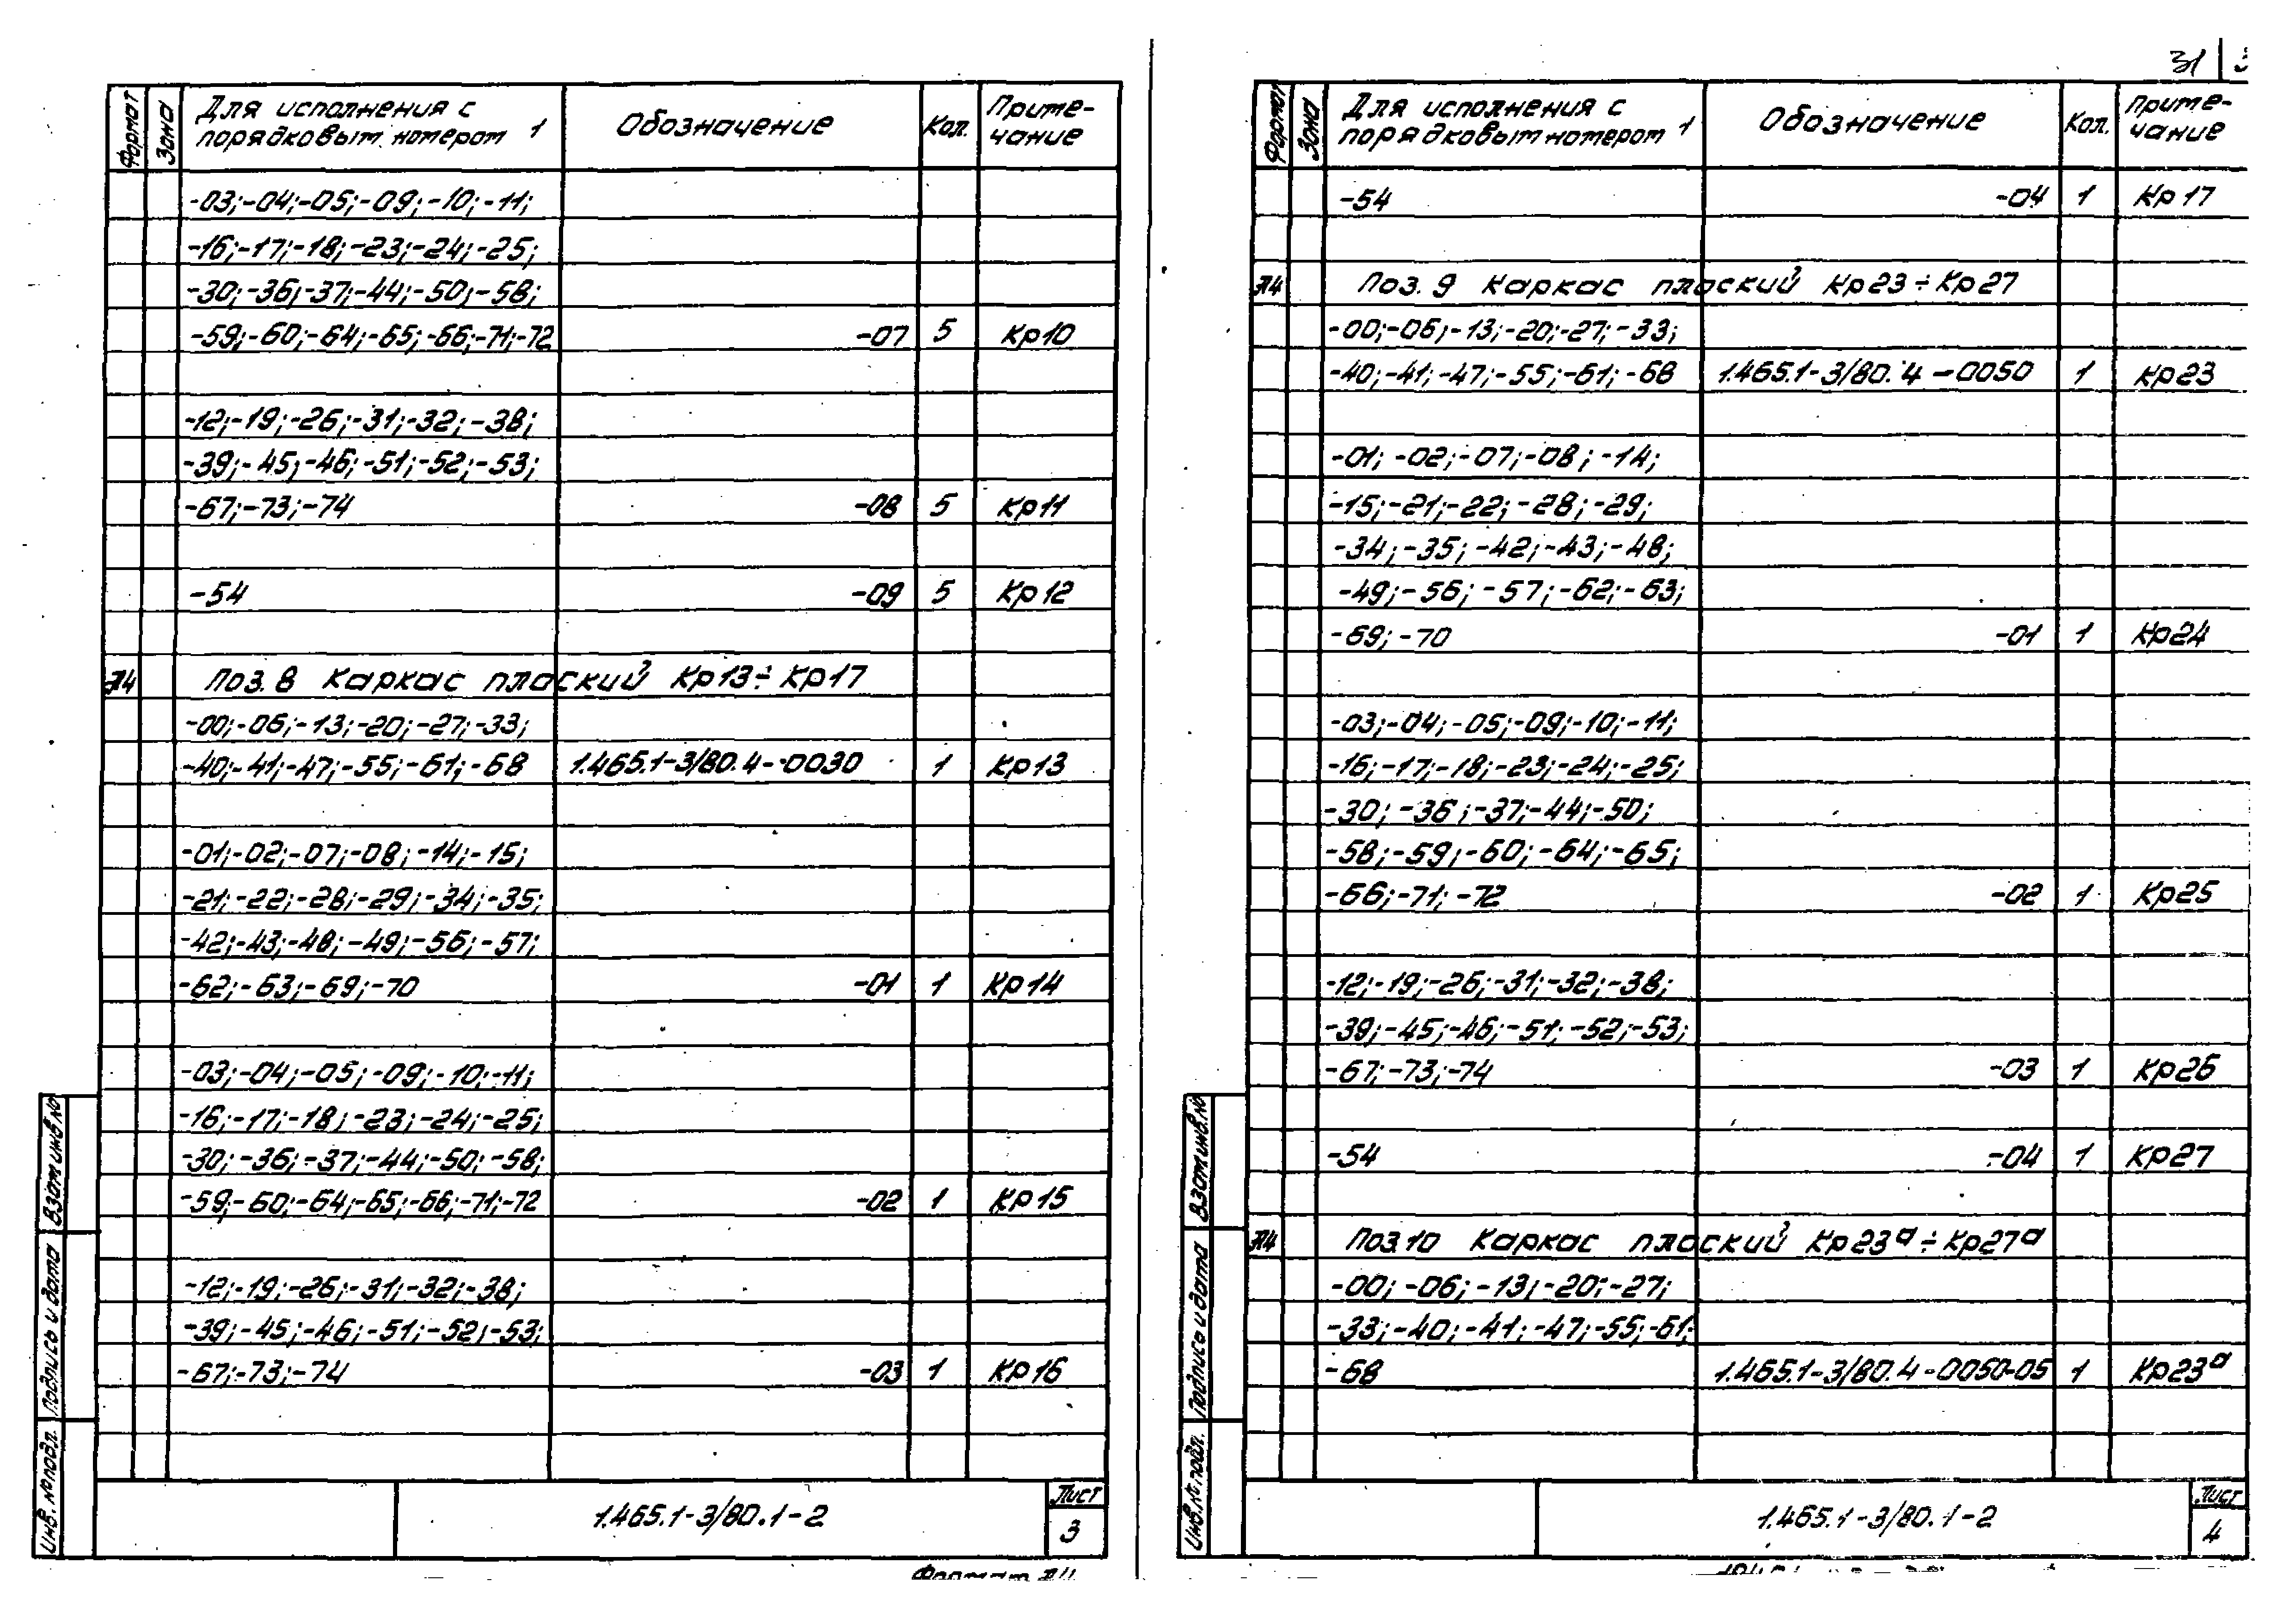 31
Формат Зона Для исполнения с порядковым номером 1 Обозначение Кол. Примечание
-03;-04;-05;-09;-10;-11;
-16;-17;-18;-23;-24;-25;
-30;-36;-37;-44;-50;-58;
-59;-60;-64;-65;-66;-71;-72 -07 5 Кр10
-12;-19;-26;-31;-32;-38;
-39;-45;-46;-51;-52;-53;
-67;-73;-74 -08 5 Кр11
-54 -09 5 Кр12
А4 Поз. 8 Каркас плоский Кр13÷Кр17
-00;-06;-13;-20;-27;-33;
-40;-41;-47;-55;-61;-68 1.465.1-3/80.4-0030 1 Кр13
-01;-02;-07;-08;-14;-15;
-21;-22;-28;-29;-34;-35;
-42;-43;-48;-49;-56;-57;
-62;-63;-69;-70 -01 1 Кр14
-03;-04;-05;-09;-10;-11;
-16;-17;-18;-23;-24;-25;
-30;-36;-37;-44;-50;-58;
-59;-60;-64;-65;-66;-71;-72 -02 1 Кр15
-12;-19;-26;-31;-32;-38;
-39;-45;-46;-51;-52;-53;
-67;-73;-74 -03 1 Кр16
Взам инв.№
Подпись и дата
Инв. № подл.
1.465.1-3/80.1-2
Лист
3
Формат А4
Формат Зона Для исполнения с порядковым номером 1 Обозначение Кол. Примечание
-54 -04 1 Кр17
А4 Поз. 9 Каркас плоский Кр23÷Кр27
-00;-06;-13;-20;-27;-33;
-40;-41;-47;-55;-61;-68 1.465.1-3/80.4-0050 1 Кр23
-01;-02;-07;-08;-14;
-15;-21;-22;-28;-29;
-34;-35;-42;-43;-48;
-49;-56;-57;-62;-63;
-69;-70 -01 1 Кр24
-03;-04;-05;-09;-10;-11;
-16;-17;-18;-23;-24;-25;
-30;-36;-37;-44;-50;
-58;-59;-60;-64;-65;
-66;-71;-72 -02 1 Кр25
-12;-19;-26;-31;-32;-38;
-39;-45;-46;-51;-52;-53;
-67;-73;-74 -03 1 Кр26
-54 -04 1 Кр27
А4 Поз.10 Каркас плоский Кр23а÷Кр27а
-00;-06;-13;-20;-27;
-33;-40;-41;-47;-55;-61;
-68 1.465.1-3/80.4-0050-05 1 Кр23а
Взам инв.№
Подпись и дата
Инв. № подл.
1.465.1-3/80.1-2
Лист
4